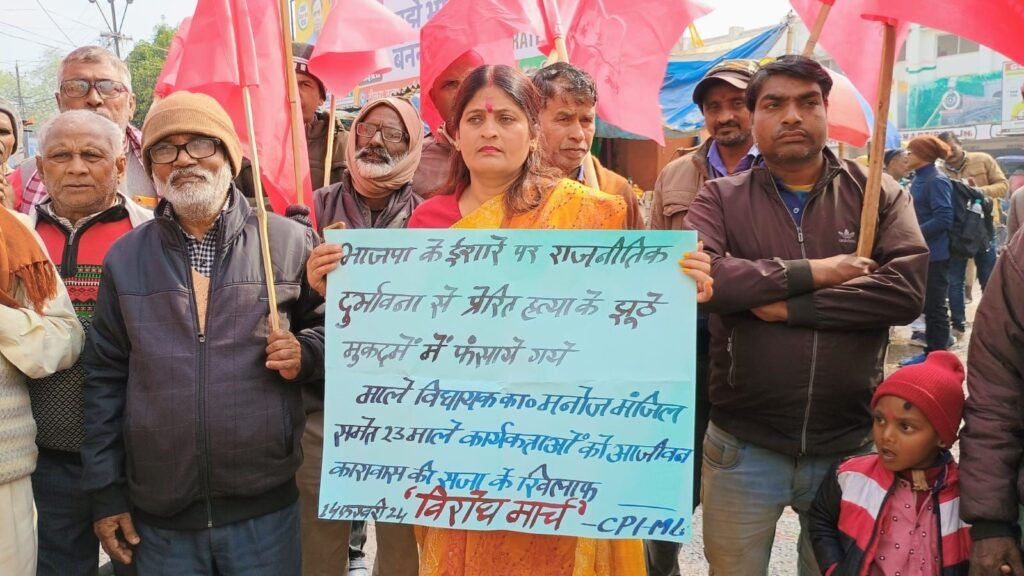 भाजपा के ईशारे पर राजनीतिक
दुर्भावना से प्रेरित हत्या के झूठे
मुकदमें में फंसाये गये
माले विधायक का० मनोज मंजिल
समेत 23 माले कार्यकर्ताओं को आजीवन
कारावास की सजा के खिलाफ
14 फरवरी 24 'विरोध मार्च' - CPI-ML
adidas